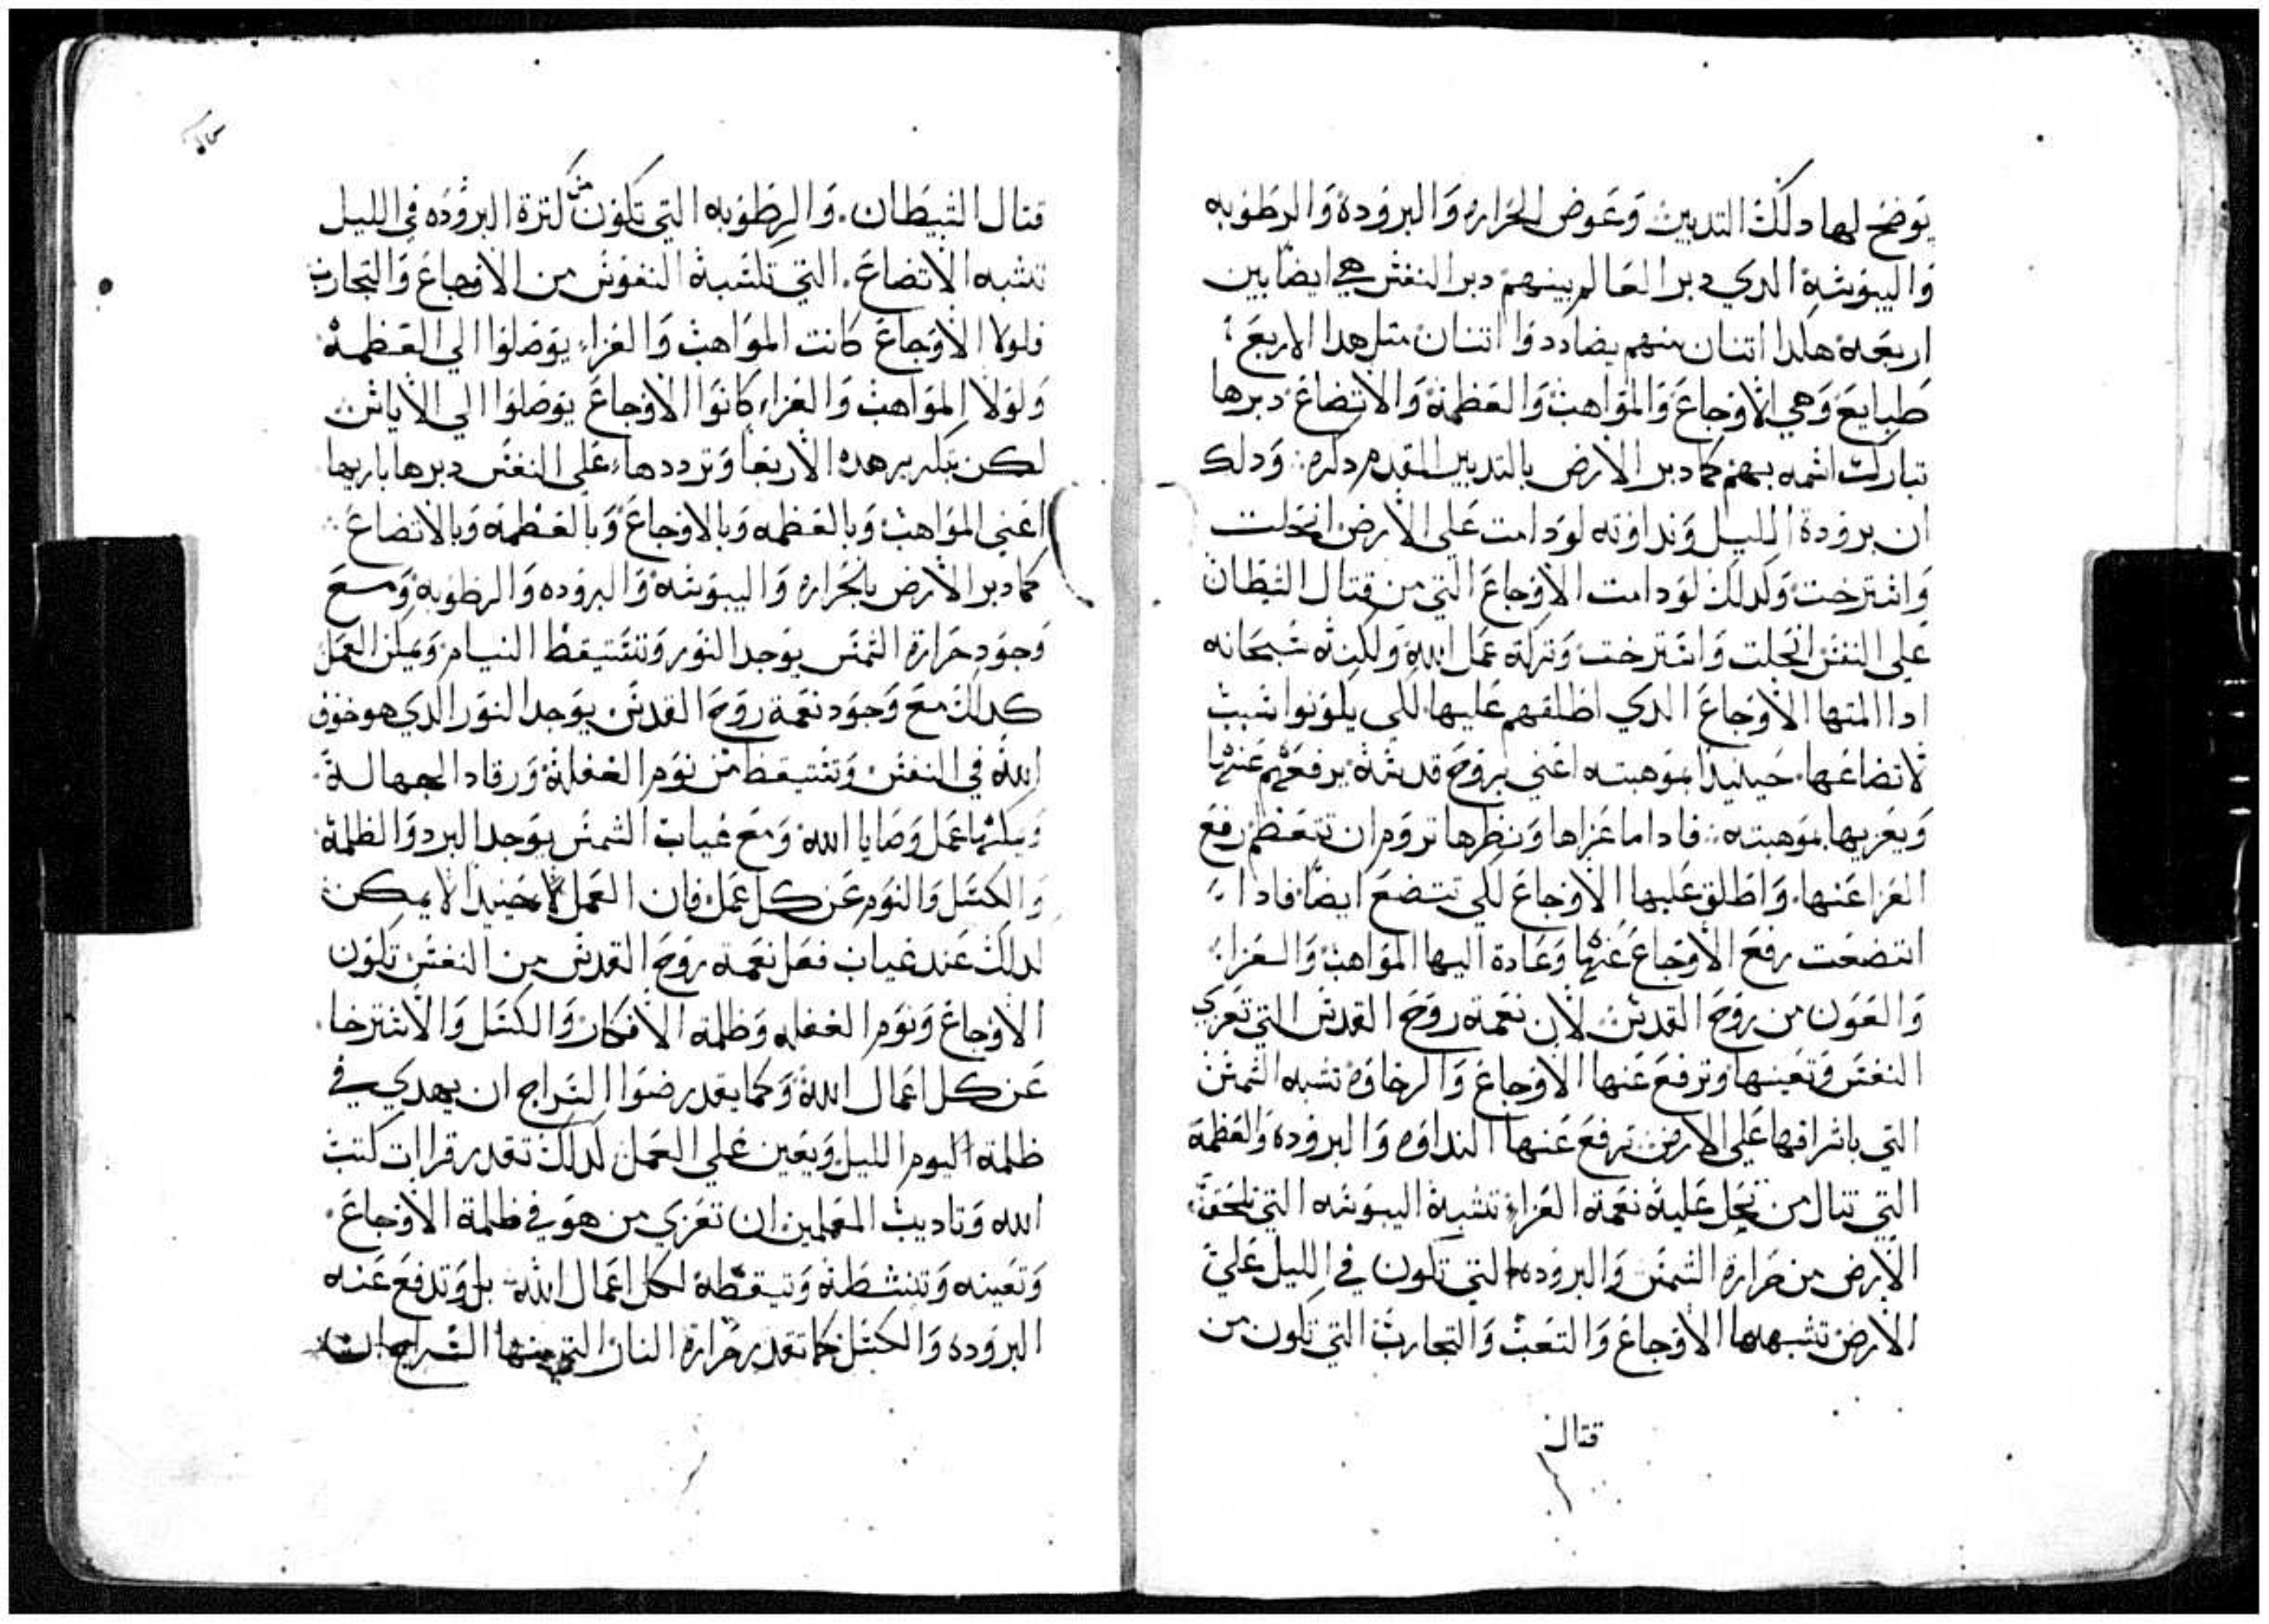 يوضح لها دلك التدبير وعوض الحراره والبرودة والرطوبه
واليبوسة الدي دبر العالم بينهم دبر النفس هي ايضا بين
اربعة هكدا اتنان منهم يضادد وا اتنان متل هدا الاربع
طبايع وهي الاوجاع والمواهب والعظمة والاتضاع دبرها
تبارك اسمه بهم كما دبر الارض بالتدبير المقدم دكره ودلك
ان برودة الليل ونداوته لو دامت علي الارض انحلت
واسترخت وكدلك لو دامت الاوجاع التي من قتال الشطان
علي النفس انحلت واسترخت وتركة عمل الله ولكنه سبحانه
ادا المتها الاوجاع الدي اطلقهم عليها لكي يكونوا سبب
لاتضاعها حينيدا بموهبته اعني بروح قدسه يرفعهم عنها
ويعزيها بموهبته فادا ما عزاها ونظرها تروم ان تتعظم رفع
العزا عنها واطلق عليها الاوجاع لكي تتضع ايضا فادا
اتضعت رفع الاوجاع عنها وعادة اليها المواهب والعزا
والعون من روح القدس لان نعمة روح القدس التي تعزي
النفس وتعينها وترفع عنها الاوجاع والرخاوه تشبه الشمس
التي باشراقها علي الارض ترفع عنها النداوه والبرودة والعظمة
التي تنال من تحل عليه نعمة العزا تشبة اليبوسه التي تلحق
الارض من حرارة الشمس والبروده التي تكون في الليل علي
الارض تشبهها الاوجاع والتعب والتجارب التي تكون من
قتال
قتال الشيطان والرطوبه التي تكون من كترة البروده في الليل
تشبه الاتضاع التي تكتسبه النفوس من الاوجاع والتجارب
فلولا الاوجاع كانت المواهب والعزاء يوصلوا الي العظمة
ولولا المواهب والعزاء كانوا الاوجاع يوصلوا الي الاياس
لكن بتكرير هده الاربعا وترددها علي النفس دبرها باريها
اعني المواهب وبالعظمه وبالاوجاع وبالعظمة وبالاتضاع
كما دبر الارض بالحراره واليبوسة والبروده والرطوبة ومع
وجود حرارة الشمس يوجد النور وتستيقظ النيام ويمكن العمل
كدالك مع وجود نعمة روح القدس يوجد النور الدي هو خوف
الله في النفس وتستيقظ من نوم الغفلة ورقاد الجهالة
ويمكنها عمل وصايا الله ومع غياب الشمس يوجد البرد والظلمة
والكسل والنوم عن كل عمل فان العمل حينيدا لا يمكن
لدلك عند غياب فعل نعمة روح القدس من النفس تكون
الاوجاع ونوم الغفله وظلمة الافكار والكسل والاسترخا
عن كل اعمال الله وكما يقدر ضوا السراج ان يهدي في
ظلمة اليوم الليل ويعين علي العمل لدلك تقدر قراات كتب
الله وتاديب المعلمين ان تعزي من هو في ظلمة الاوجاع
وتعينه وتنشطة وتيقظة لكل اعمال الله بل وتدفع عنه
البروده والكسل كما تقدر حرارة النار التي منها السراج ان